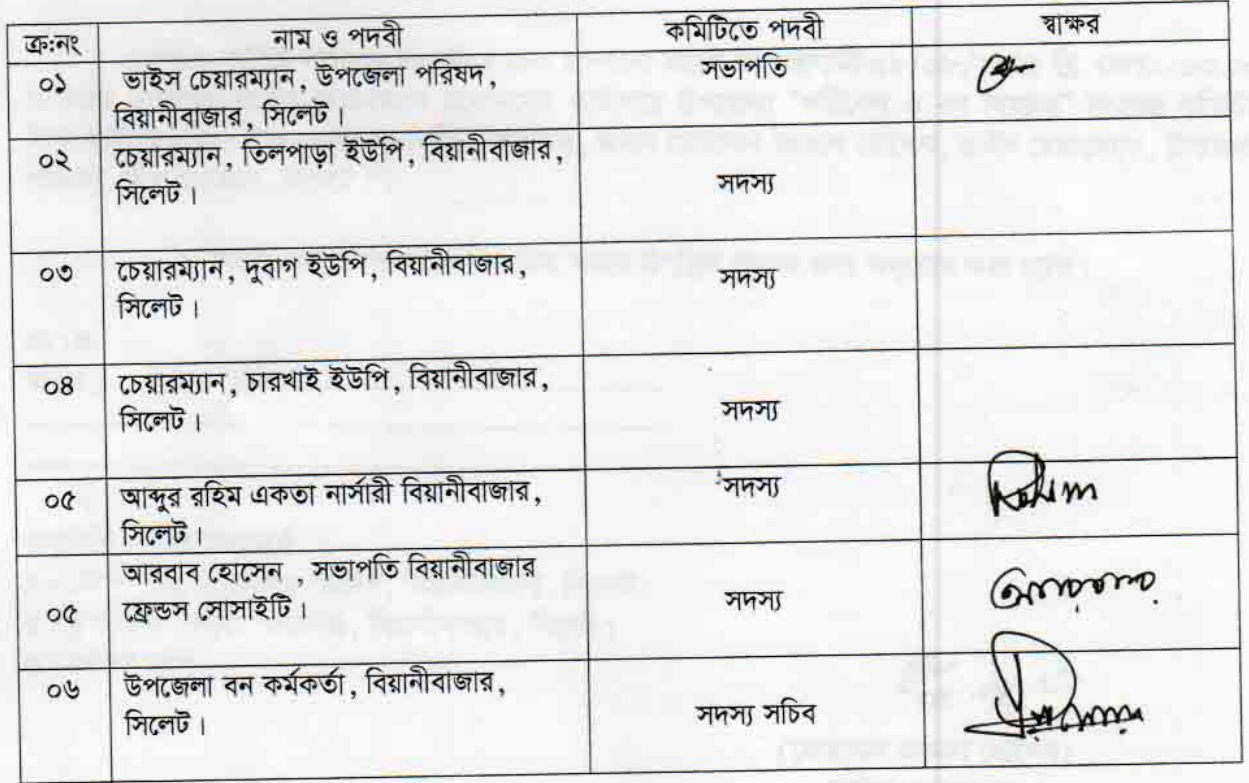 ক্র:নং নাম ও পদবী কমিটিতে পদবী স্বাক্ষর
০১ ভাইস চেয়ারম্যান, উপজেলা পরিষদ, সভাপতি
বিয়ানীবাজার, সিলেট।
০২ চেয়ারম্যান, তিলপাড়া ইউপি, বিয়ানীবাজার,
সিলেট। সদস্য
০৩ চেয়ারম্যান, দুবাগ ইউপি, বিয়ানীবাজার, সদস্য
সিলেট।
০৪ চেয়ারম্যান, চারখাই ইউপি, বিয়ানীবাজার,
সিলেট। সদস্য
০৫ আব্দুর রহিম একতা নার্সারী বিয়ানীবাজার, সদস্য Rahim
সিলেট।
আরবাব হোসেন , সভাপতি বিয়ানীবাজার
০৫ ফ্রেন্ডস সোসাইটি। সদস্য
০৬ উপজেলা বন কর্মকর্তা, বিয়ানীবাজার,
সিলেট। সদস্য সচিব